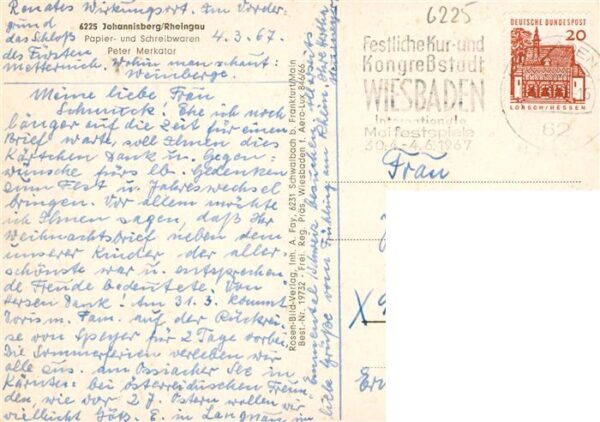 Renates Wirkungsort. Im Vorder-
grund
das Schloß
des Fürsten
Metternich. Wohin man schaut:
Weinberge.
6225 Johannisberg/Rheingau
Papier- und Schreibwaren
Peter Merkator
4.3.67.
Meine liebe Frau
Schmuck! Ehe ich noch
länger auf die Zeit für einen
Brief warte, soll Ihnen dies
Kärtchen Dank u. Gegen-
wünsche fürs lb. Gedenken
zum Fest u. Jahreswechsel
bringen. Vor allem möchte
ich Ihnen sagen, daß Ihr
Weihnachtsbrief neben dem
unserer Kinder der aller-
schönste war u. entsprechen-
de Freude bedeutete. Von
Herzen Dank! Am 31.3. kommt
Doris m. Fam. auf der Rückrei-
se von Speyer für 2 Tage vorbei.
Die Sommerferien verleben wir
alle zus. am Ossiacher See in
Kärnten: bei österreichischen Freun-
den, wie vor 2 J. Ostern wollen wir
vielleicht Göß. E. in Langnau im
Emmental/Schweiz besuchen.
liebe Grüße vom Frühling am Rhein.
Rosen-Bild-Verlag, Inh. A. Fay, 6231 Schwalbach b. Frankfurt/Main
Best.-Nr. 19732 - Frei. Reg. Präs. Wiesbaden f. Aero-Lux 846/66
6225
Festliche Kur- und
Kongreßstadt
WIESBADEN
Internationale
Maifestspiele
30.4.-4.6.1967
DEUTSCHE BUNDESPOST
20
LORSCH/HESSEN
62
Frau